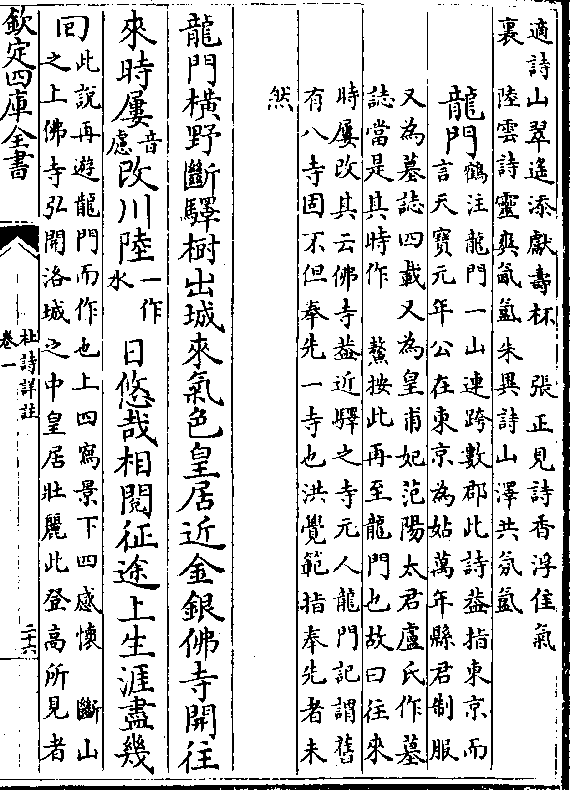 適詩山翠遙添獻壽杯　張正見詩香浮佳氣
裏　陸雲詩靈爽氤氳朱異詩山澤共氛氳
龍門
鶴注龍門一山連跨數郡此詩蓋指東京而
言天寶元年公在東京為姑萬年縣君制服
又為墓誌四載又為皇甫妃范陽太君盧氏作墓
誌當是其時作　鰲按此再至龍門也故曰往來
時屢改其云佛寺蓋近驛之寺元人龍門記謂舊
有八寺固不但奉先一寺也洪覺範指奉先者未
然
龍門橫野斷驛樹出城來氣色皇居近金銀佛寺開往
來時屢音慮改川陸一作水日悠哉相閱征途上生涯盡幾
回此說再遊龍門而作也上四寫景下四感懷　斷山
之上佛寺弘開洛城之中皇居壯麗此登高所見者
欽定四庫全書
杜詩詳註
卷一
二十六